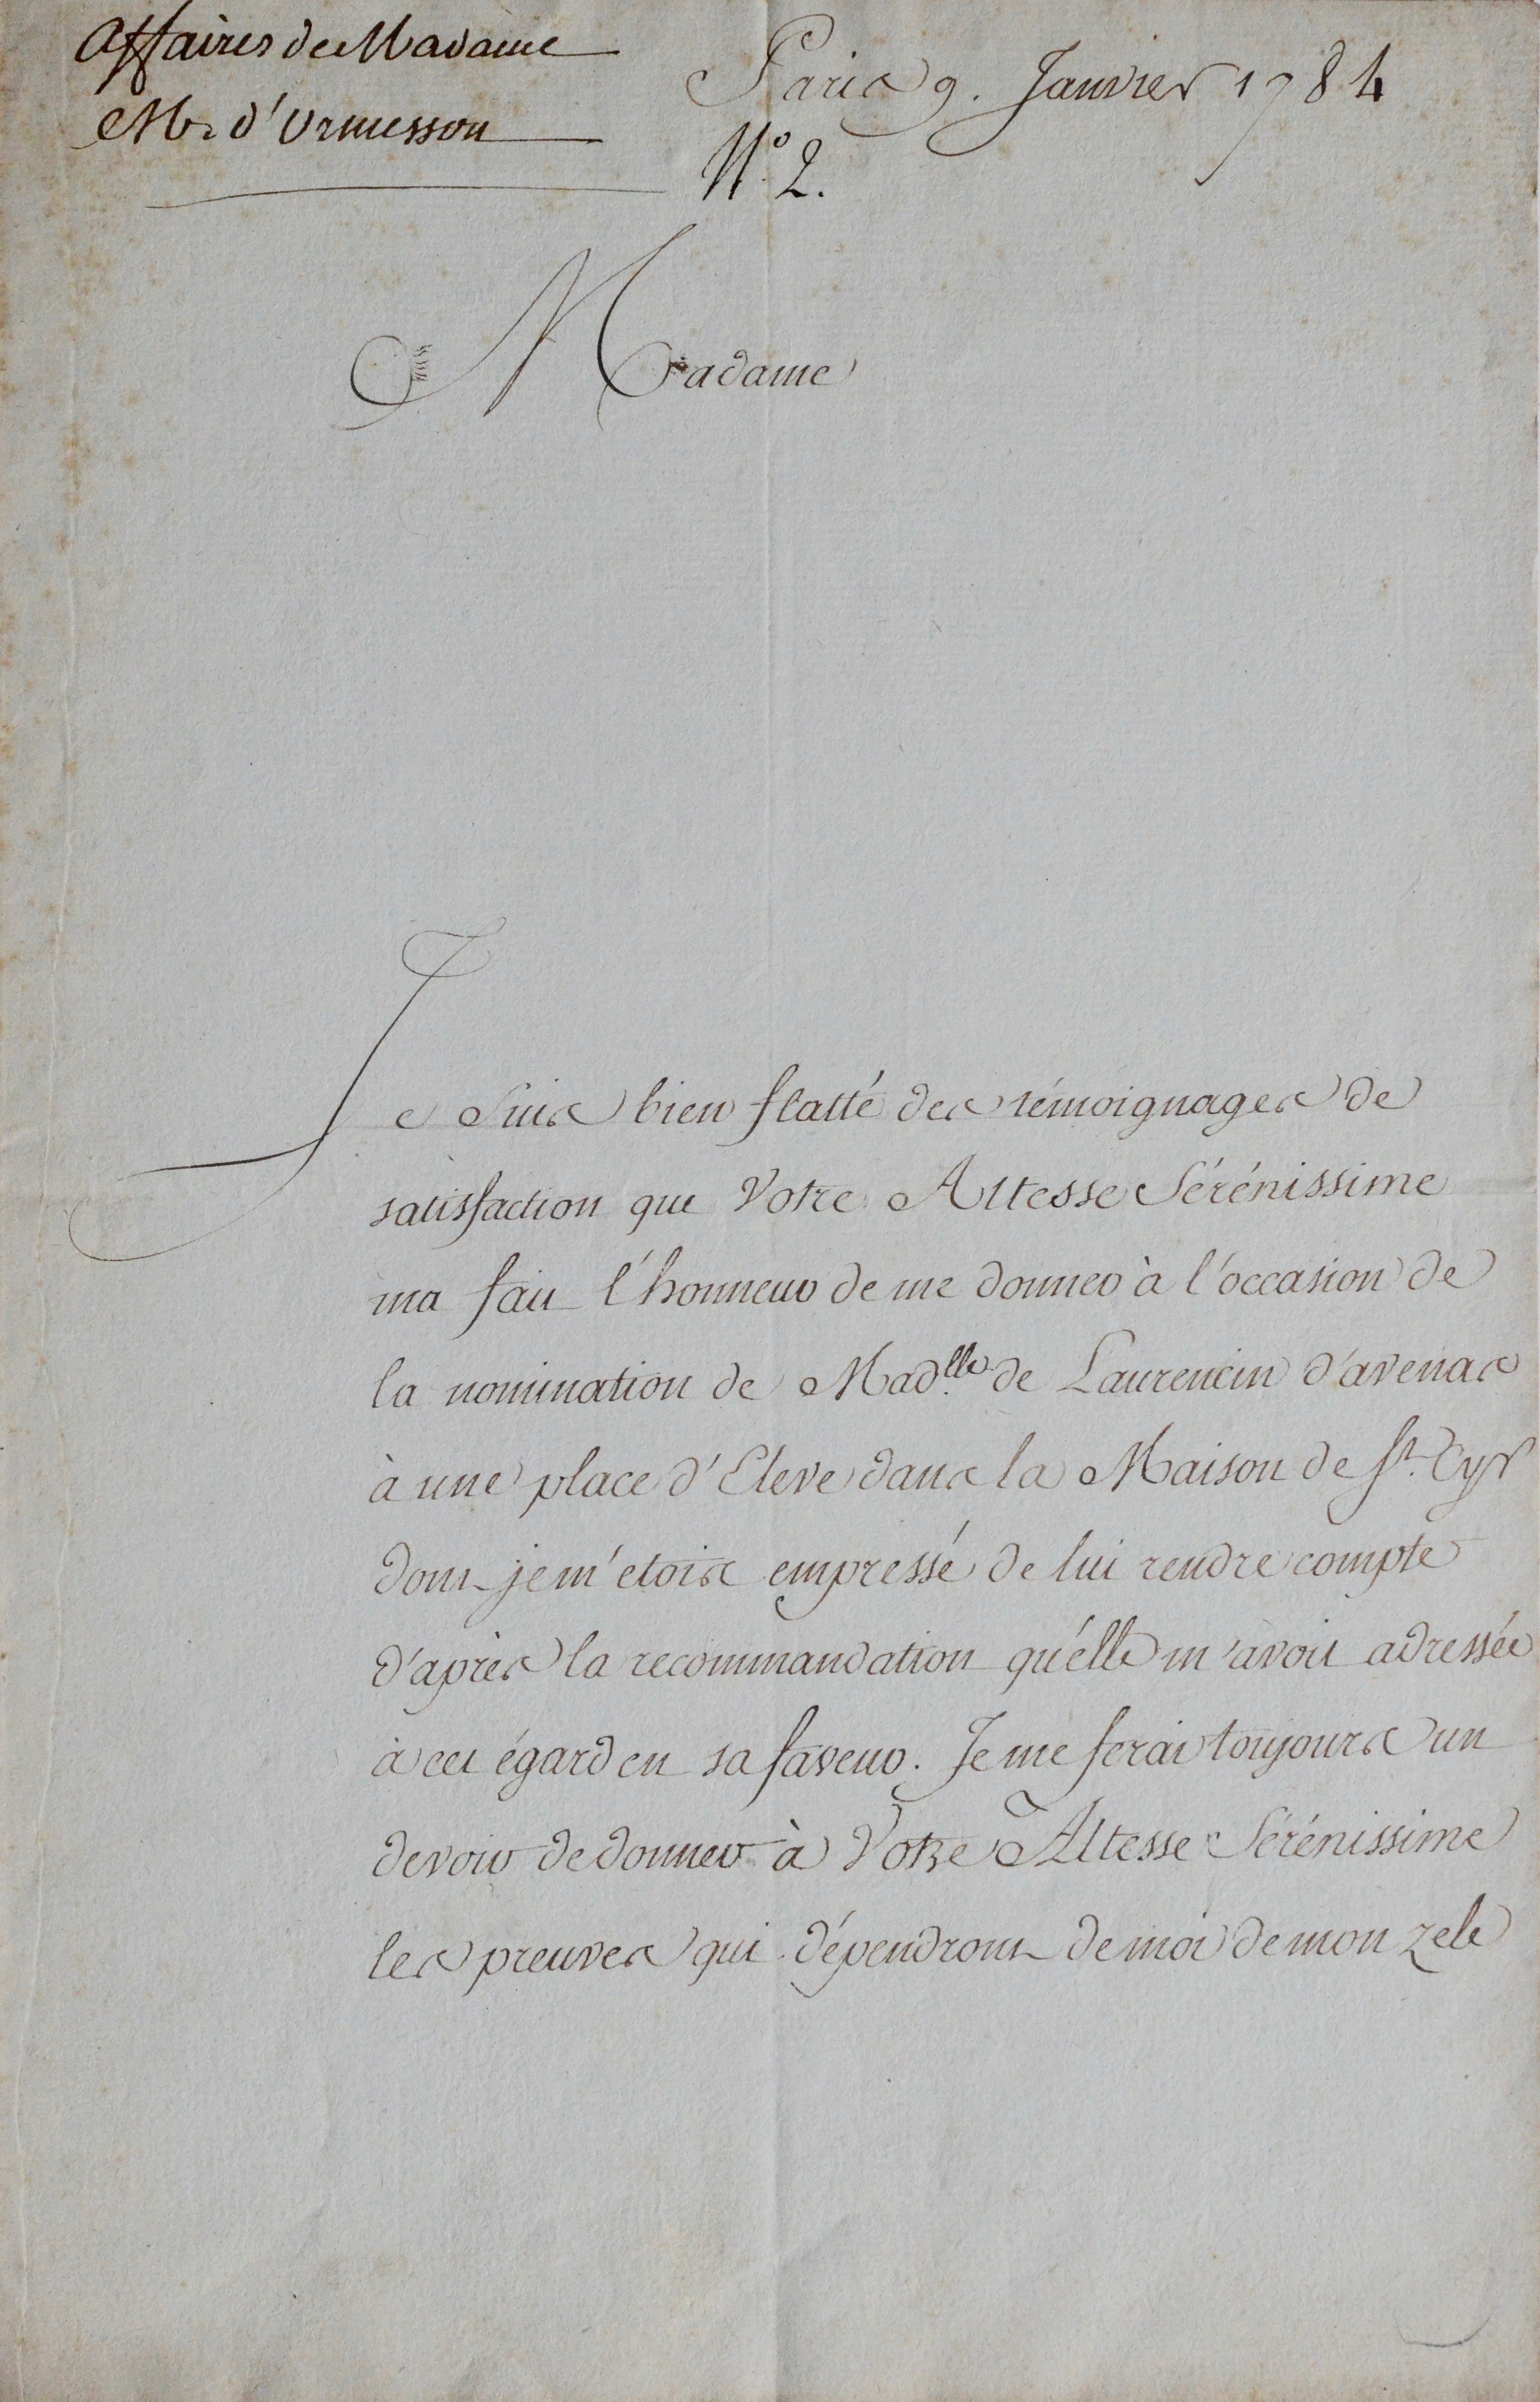 Affaires de Madame
Mr. d'Ormesson
Paris 9. Janvier 1784
N° 2.
Madame
Je Suis bien flatté des témoignages de
satisfaction que Votre Altesse Sérénissime
ma fait l'honneur de me donner à l'occasion de
la nomination de Mad.lle de Laurencin d'avenas
à une place d'Eleve dans la Maison de St. Cyr
dont je m'etois empressé de lui rendre compte
d'après la recommandation qu'elle m'avoit adressée
à cet égard en sa faveur. Je me ferai toujours un
devoir de donner à Votre Altesse Sérénissime
les preuves qui dépendront de moi de mon zele